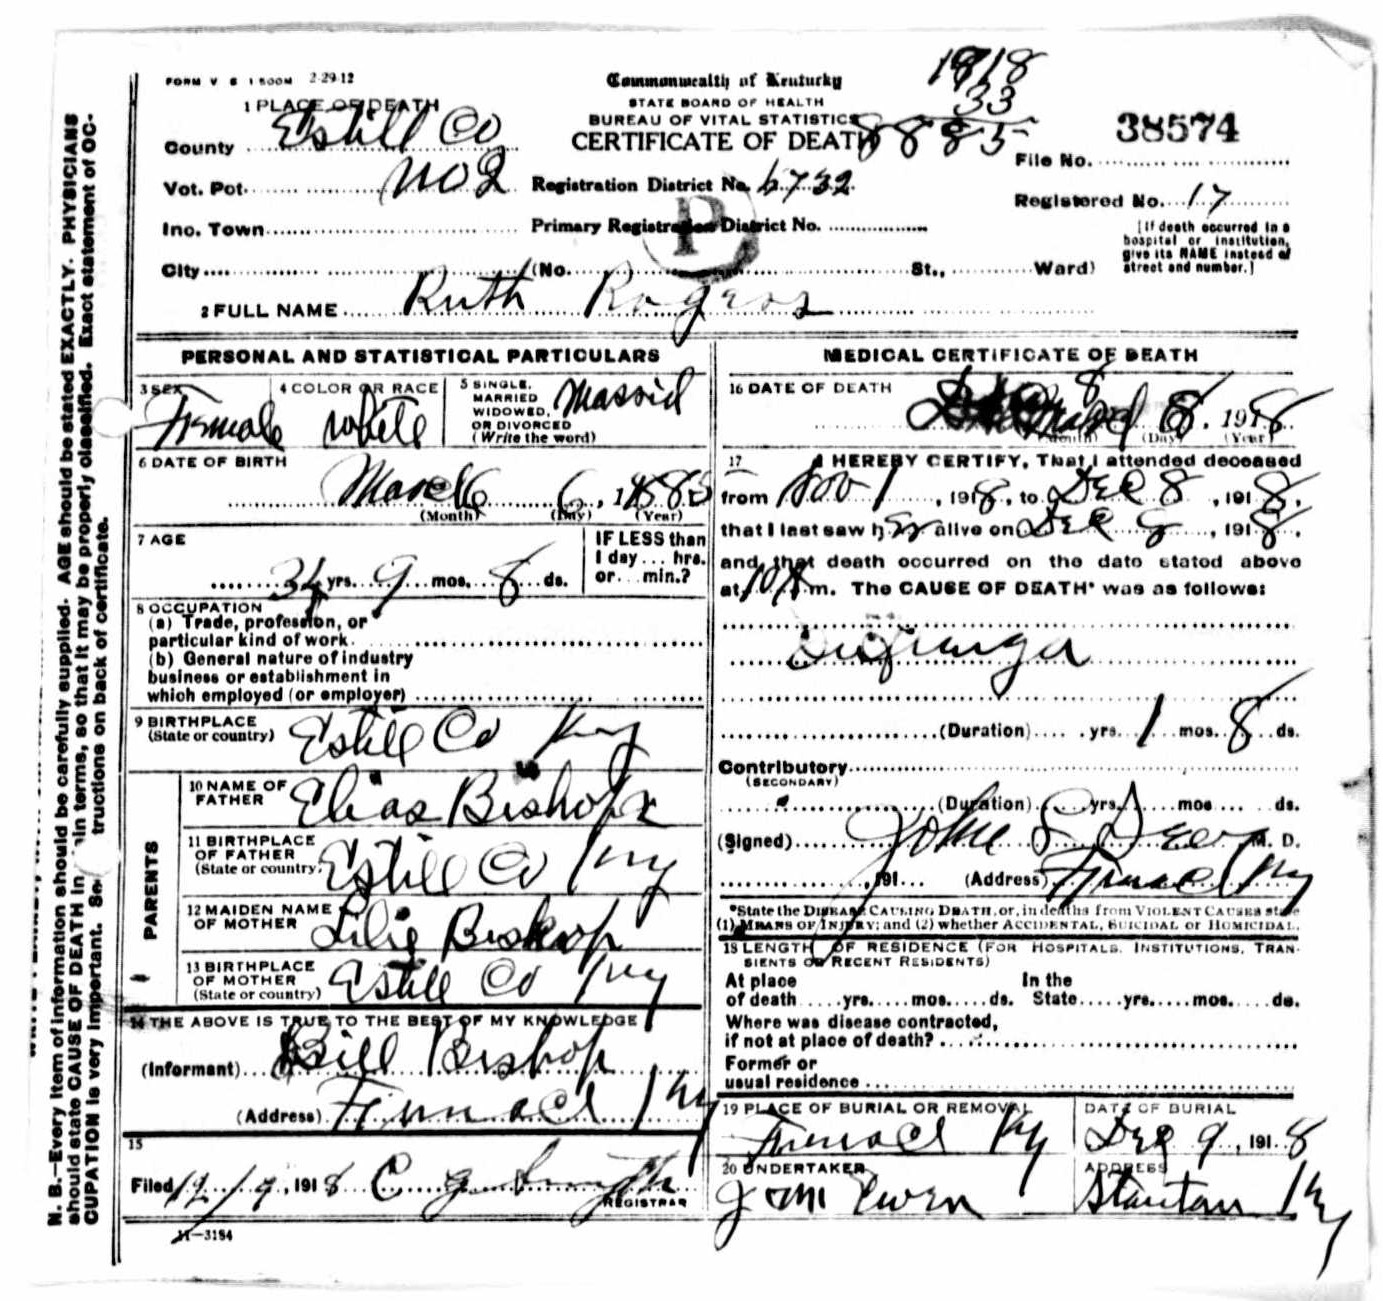 FORM V S 1 500M 2-29-12
Commonwealth of Kentucky
STATE BOARD OF HEALTH
BUREAU OF VITAL STATISTICS
CERTIFICATE OF DEATH
1918
33
8885
38574
File No.
Registered No. 17
[If death occurred in a hospital or institution, give its NAME instead of street and number.]
1 PLACE OF DEATH
County Estill Co
Vot. Pct. No 2 Registration District No. 6732
Inc. Town Primary Registration District No.
P
City (No. St., Ward)
2 FULL NAME Ruth Rogers
PERSONAL AND STATISTICAL PARTICULARS
3 SEX Female
4 COLOR OR RACE White
5 SINGLE, MARRIED WIDOWED, OR DIVORCED (Write the word) Marrid
6 DATE OF BIRTH
March 6, 188
(Month) (Day) (Year)
7 AGE
34 yrs. 9 mos. 8 ds.
IF LESS than 1 day ... hrs. or ... min.?
8 OCCUPATION
(a) Trade, profession, or particular kind of work
(b) General nature of industry business or establishment in which employed (or employer)
9 BIRTHPLACE (State or country) Estill Co Ky
PARENTS
10 NAME OF FATHER Elias Bishop
11 BIRTHPLACE OF FATHER (State or country) Estill Co Ky
12 MAIDEN NAME OF MOTHER Bishop
13 BIRTHPLACE OF MOTHER (State or country) Estill Co Ky
14 THE ABOVE IS TRUE TO THE BEST OF MY KNOWLEDGE
(Informant) Bill Bishop
(Address) Furnace Ky
15
Filed 12/9, 1918 C G Smyth
REGISTRAR
11-3184
MEDICAL CERTIFICATE OF DEATH
16 DATE OF DEATH
8
8, 1918
(Month) (Day) (Year)
17 I HEREBY CERTIFY, That I attended deceased
from Nov 1, 1918, to Dec 8, 1918,
that I last saw her alive on Dec 8, 1918,
and that death occurred on the date stated above
at 10 m. The CAUSE OF DEATH* was as follows:
(Duration) yrs. 1 mos. 8 ds.
Contributory
(SECONDARY)
(Duration) yrs. mos ds.
(Signed) John S M. D.
, 191 (Address) Furnace Ky
*State the DISEASE CAUSING DEATH, or, in deaths from VIOLENT CAUSES state
(1) MEANS OF INJURY; and (2) whether ACCIDENTAL, SUICIDAL or HOMICIDAL.
18 LENGTH OF RESIDENCE (FOR HOSPITALS, INSTITUTIONS, TRANSIENTS OR RECENT RESIDENTS)
At place of death yrs. mos. ds. In the State yrs. mos. ds.
Where was disease contracted, if not at place of death?
Former or usual residence
19 PLACE OF BURIAL OR REMOVAL
Furnace Ky
DATE OF BURIAL
Dec 9, 1918
20 UNDERTAKER
J M Ewen
ADDRESS
Stanton Ky
N. B.—Every item of information should be carefully supplied. AGE should be stated EXACTLY. PHYSICIANS
should state CAUSE OF DEATH in plain terms, so that it may be properly classified. Exact statement of OC-
CUPATION is very important. See instructions on back of certificate.